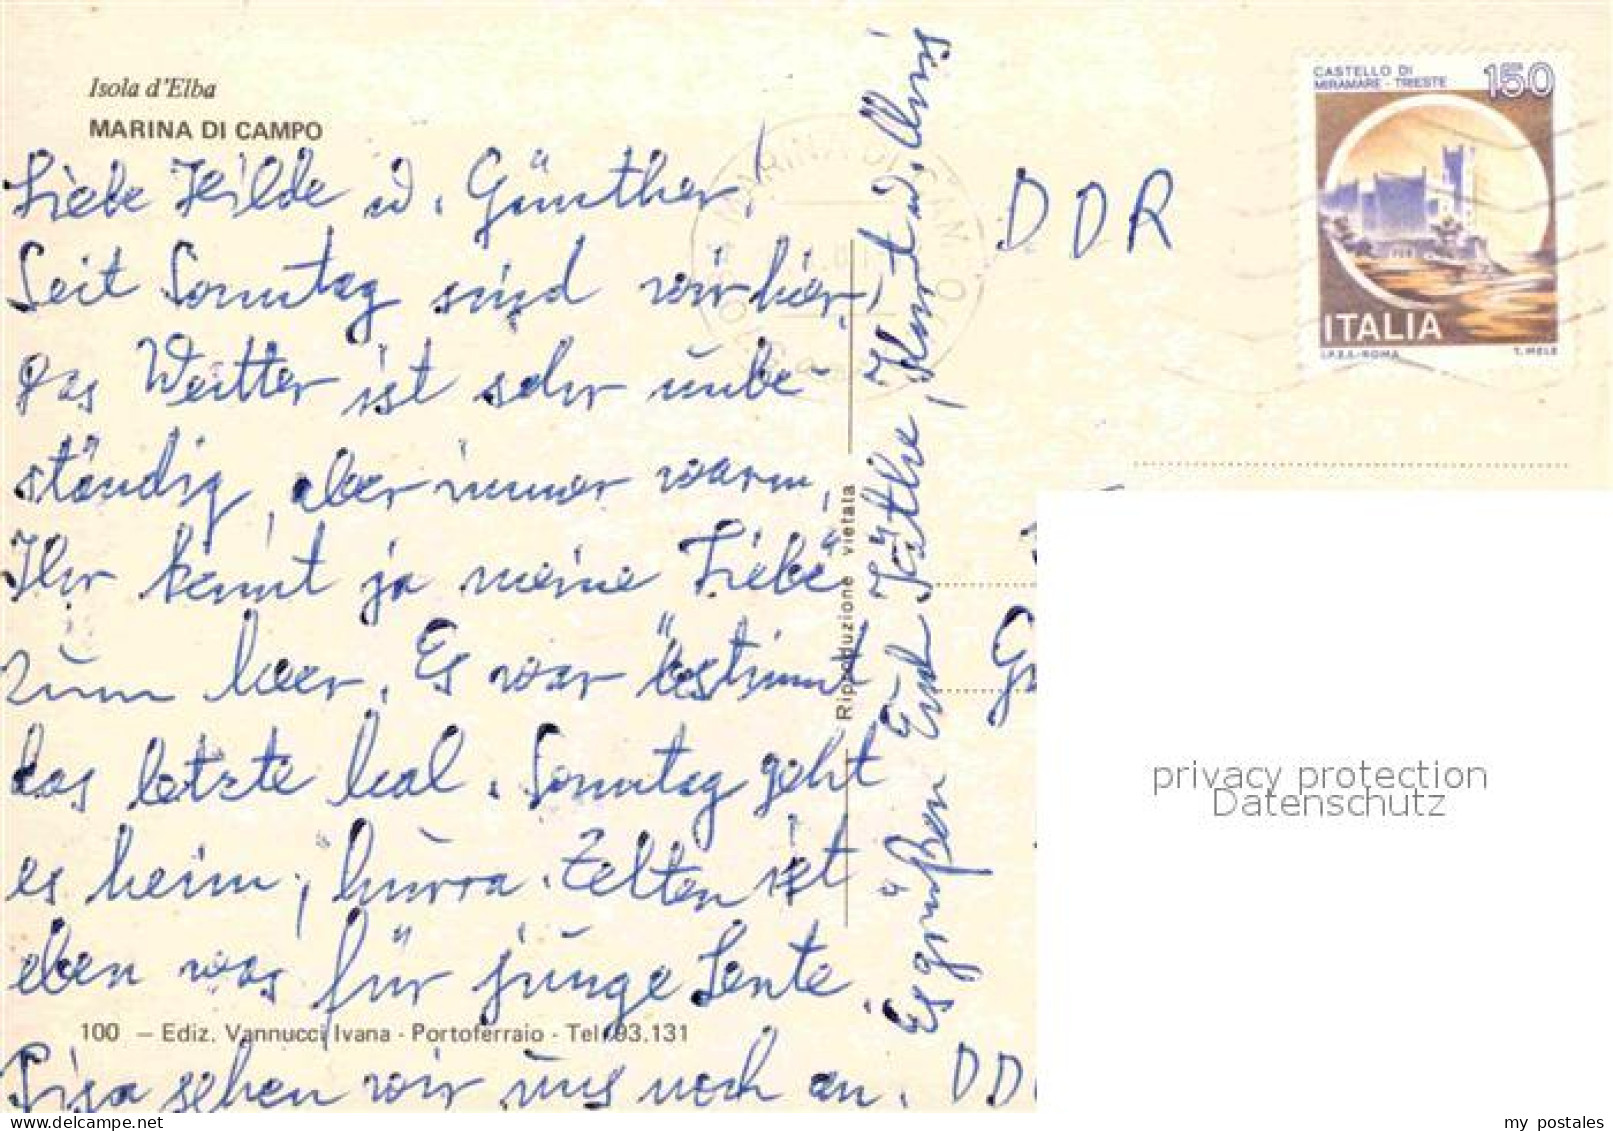 Isola d'Elba
MARINA DI CAMPO
Liebe Hilde u. Günther!
Seit Sonntag sind wir hier,
das Wetter ist sehr unbe-
ständig, aber immer warm,
Ihr kennt ja meine Liebe
zum Meer. Es war bestimmt
das letzte Mal. Sonntag geht
es heim, hurra. Zelten ist
eben was für junge Leute.
100 — Ediz. Vannucci Ivana - Portoferraio - Tel. 93.131
Pisa sehen wir uns noch an.
Es grüßen Euch Käthe, Kurt u. Chris
Riproduzione vietata
MARINA DI CAMPO
DDR
CASTELLO DI
MIRAMARE - TRIESTE
150
ITALIA
I.P.Z.S.-ROMA T. MELE
G
DD
privacy protection
Datenschutz
my postales